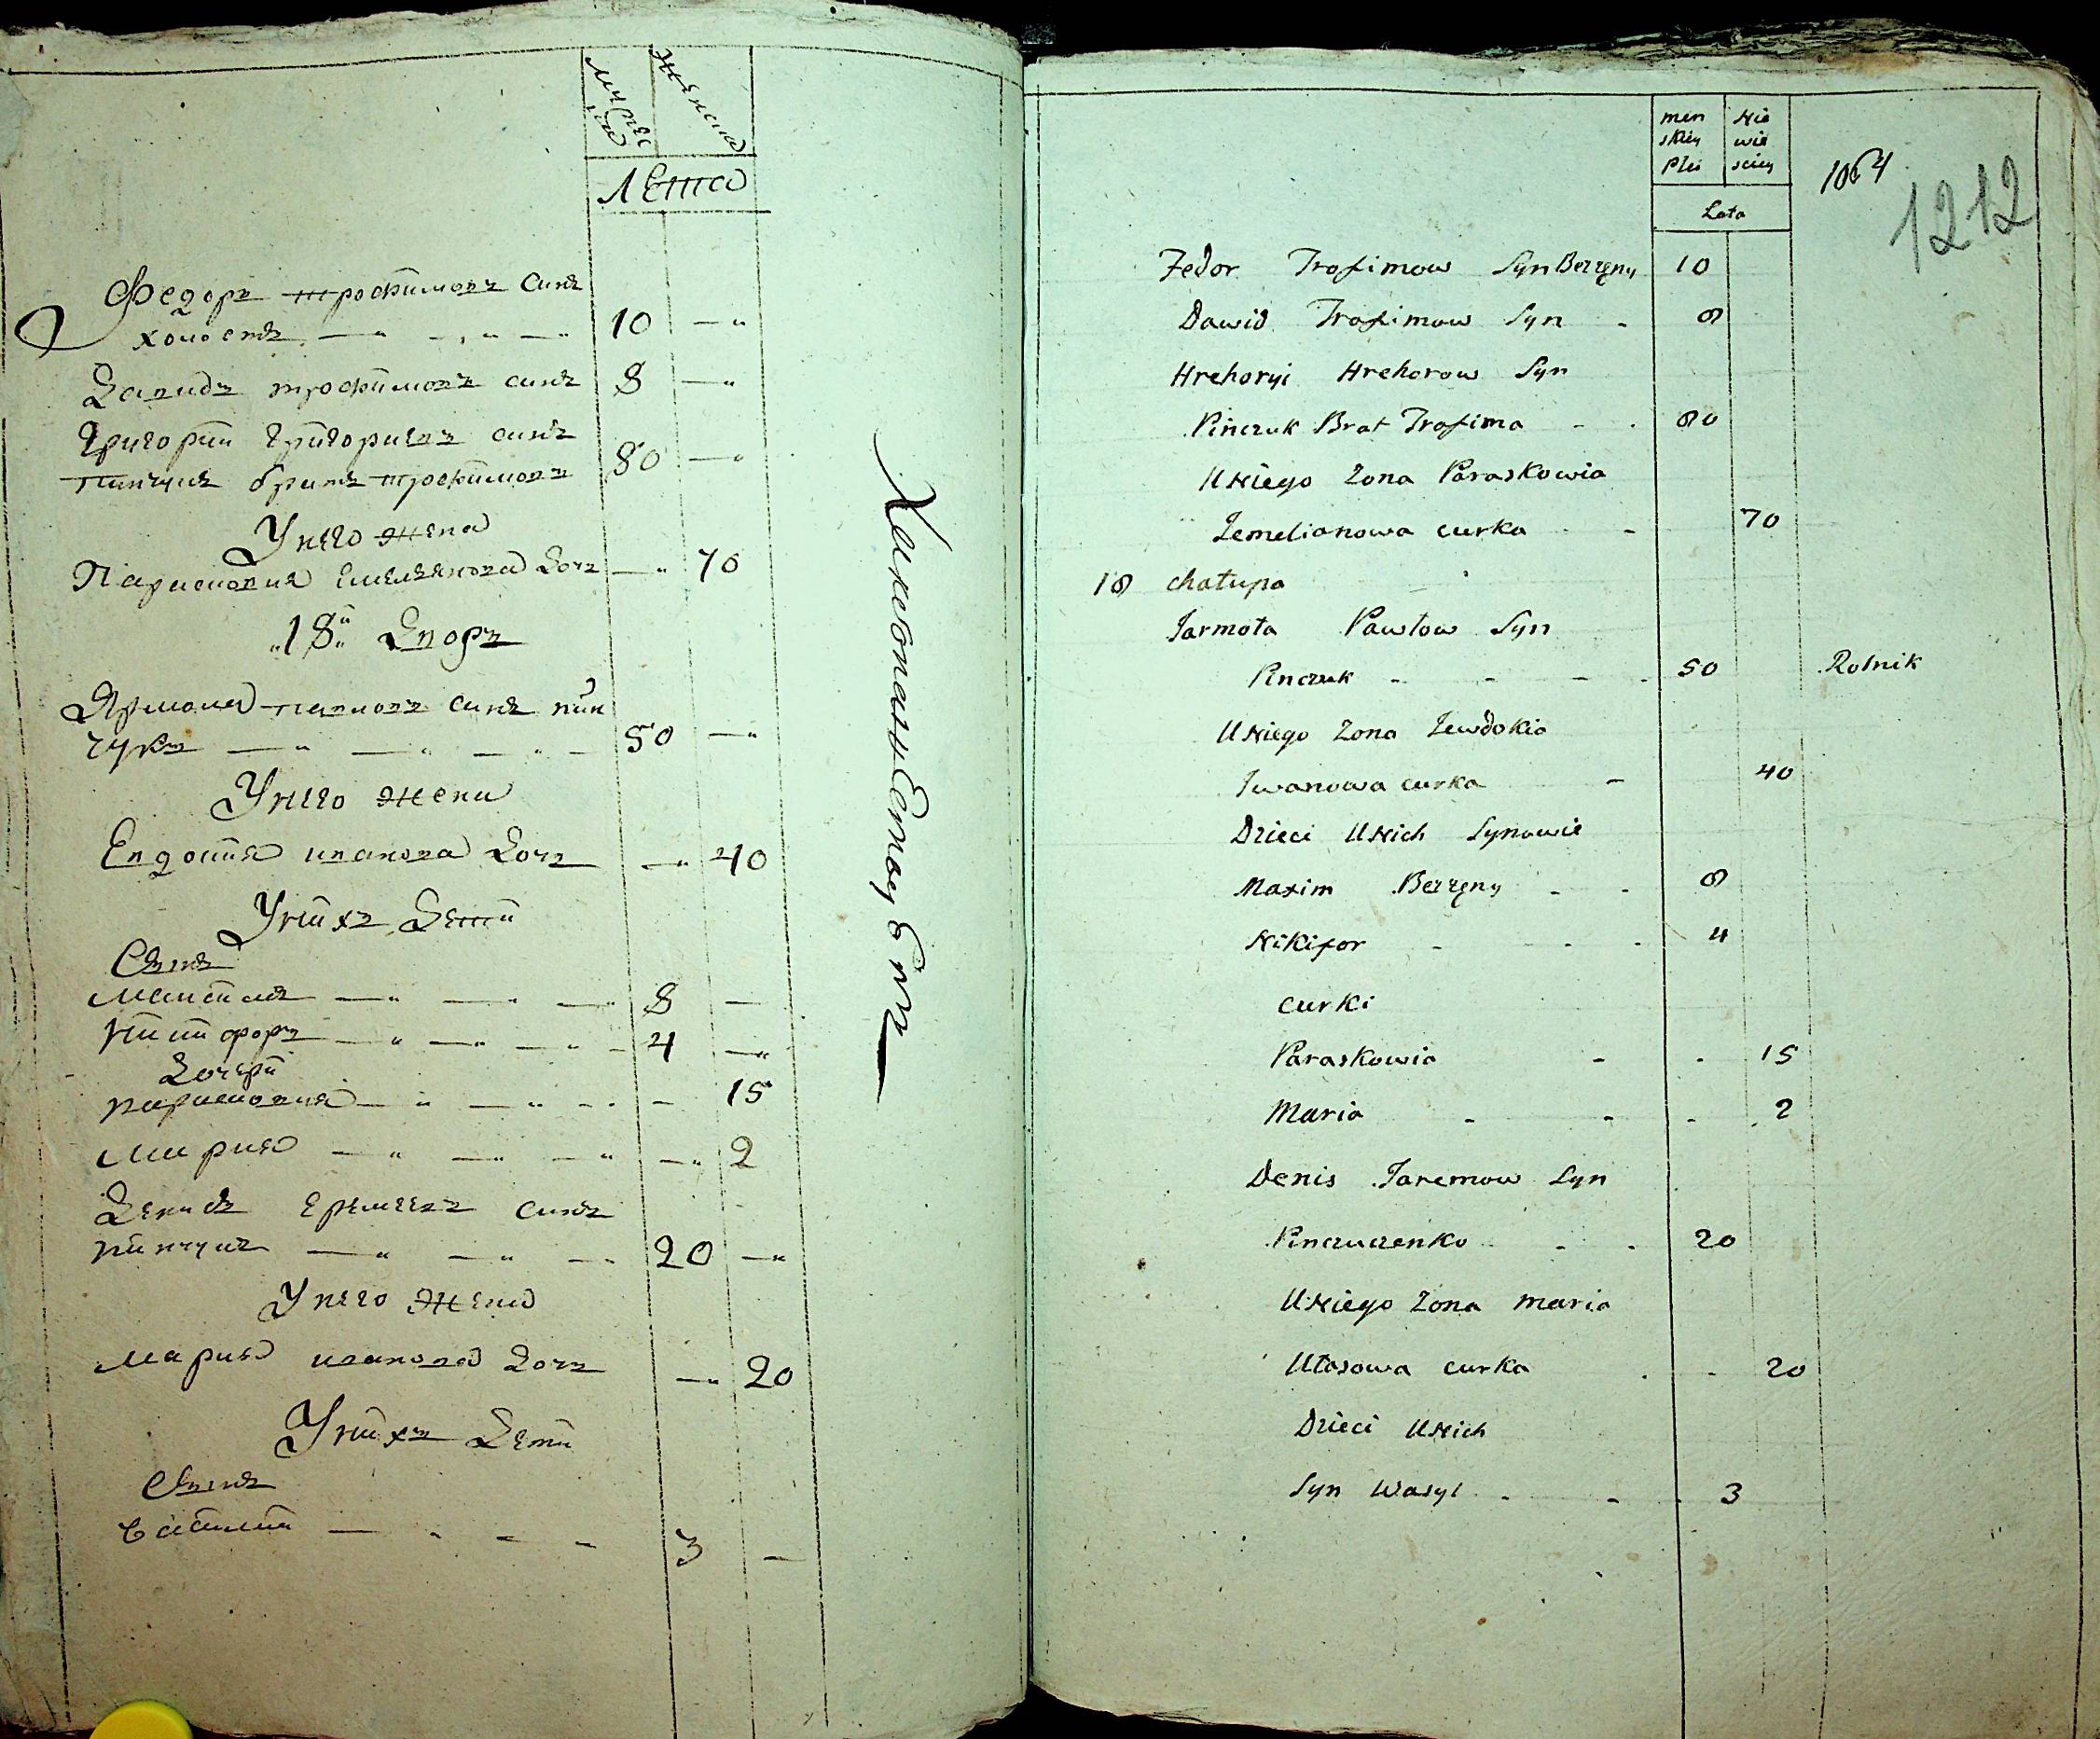 мужес
кiй
женска
Лета
Федоръ трофимовъ синъ
холостъ 10
Давидъ трофимовъ синъ 8
Григорий Григориевъ синъ
пинчукъ братъ трофимовъ 80
У него жена
Парасковия Емелянова дочъ 70
18й Дворъ
Ярмола павловъ синъ пин
чукъ 50
У него жена
Евдокия иванова дочъ 40
У нихъ Дети
Синъ
Максимъ 8
Никифоръ 4
Дочери
парасковия 15
Мария 2
Денисъ еремеевъ синъ
пинчукъ 20
У него жена
Мария иванова дочъ 20
У нихъ Дети
Синъ
василий 3
men
skiey
Plci
Nie
wie
sciey
Lata
1064
1212
Fedor Trofimow Syn Bezzęny 10
Dawid Trofimow Syn - 8
Hrehoryi Hrehorow Syn
Pinczuk Brat Trofima - - 80
U Niego Zona Paraskowia
Jemelianowa curka - 70
18 chałupa
Jarmoła Pawłow Syn
Pinczuk - - - - 50 Rolnik
U Niego Zona Jewdokia
Iwanowa curka - 40
Dzieci U Nich Synowie
Maxim Bezzęny - - 8
Nikifor - - - 4
curki
Paraskowia - - 15
Maria - - - 2
Denis Jaremow Syn
Pinczuczenko - - 20
U Niego Zona Maria
Ułasowa curka - - 20
Dzieci U Nich
Syn Wasyl - - - 3